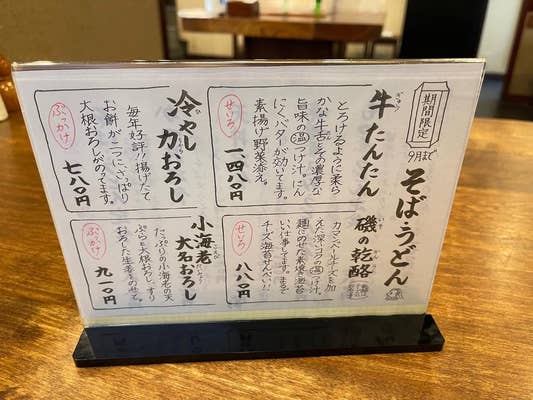 期間限定
9月まで
そば・うどん
牛たんたん
ぎゅう
せいろ
とろけるように柔ら
かな牛舌とその濃厚な
旨味の温つけ汁。にん
にくバターが効いてます。
素揚げ野菜添え。
一四八〇円
冷やし力おろし
ぶっかけ
毎年好評!!揚げたて
お餅が二つにさっぱり
大根おろしがのってます。
七八〇円
磯の乾酪
せいろ
カマンベールチーズを加
えた深いコクの温つけ汁。
麺にのせた素焼き海苔
いい仕事してます。まるで
チーズ海苔せんべい!!
八八〇円
小海老
大名おろし
ぶっかけ
たっぷりの小海老の天
ぷらと大根おろし、すり
おろした生姜をのせて。
九一〇円